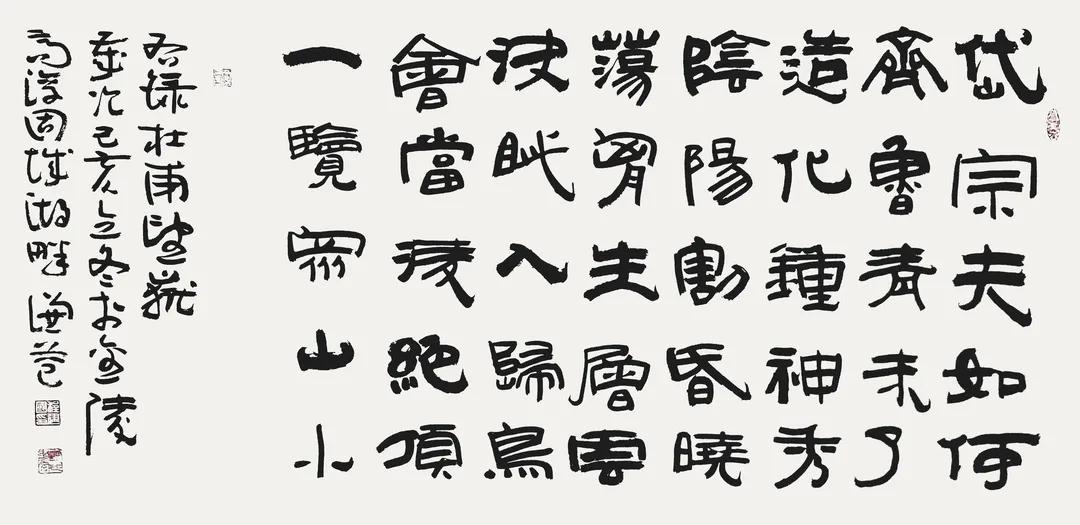 岱宗夫如何
齊魯青未了
造化鍾神秀
陰陽割昏曉
蕩胷生層雲
決眦入歸鳥
會當凌絕頂
一覽眾山小
右録杜甫望嶽
歲次己亥立冬於金陵
高淳固城湖畔